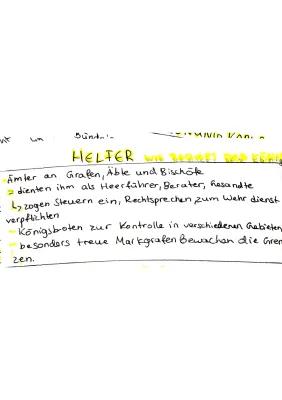 HELFER
Ämter an Grafen, Äbte und Bischöfe
dienten ihm als Heerführer, Berater, Gesandte
↳ zogen Steuern ein, Rechtsprechen, zum Wehr dienst
verpflichten
- Königsboten zur Kontrolle in verschiedenen Gebieten
- besonders treue Markgrafen Bewachen die Gren
zen.